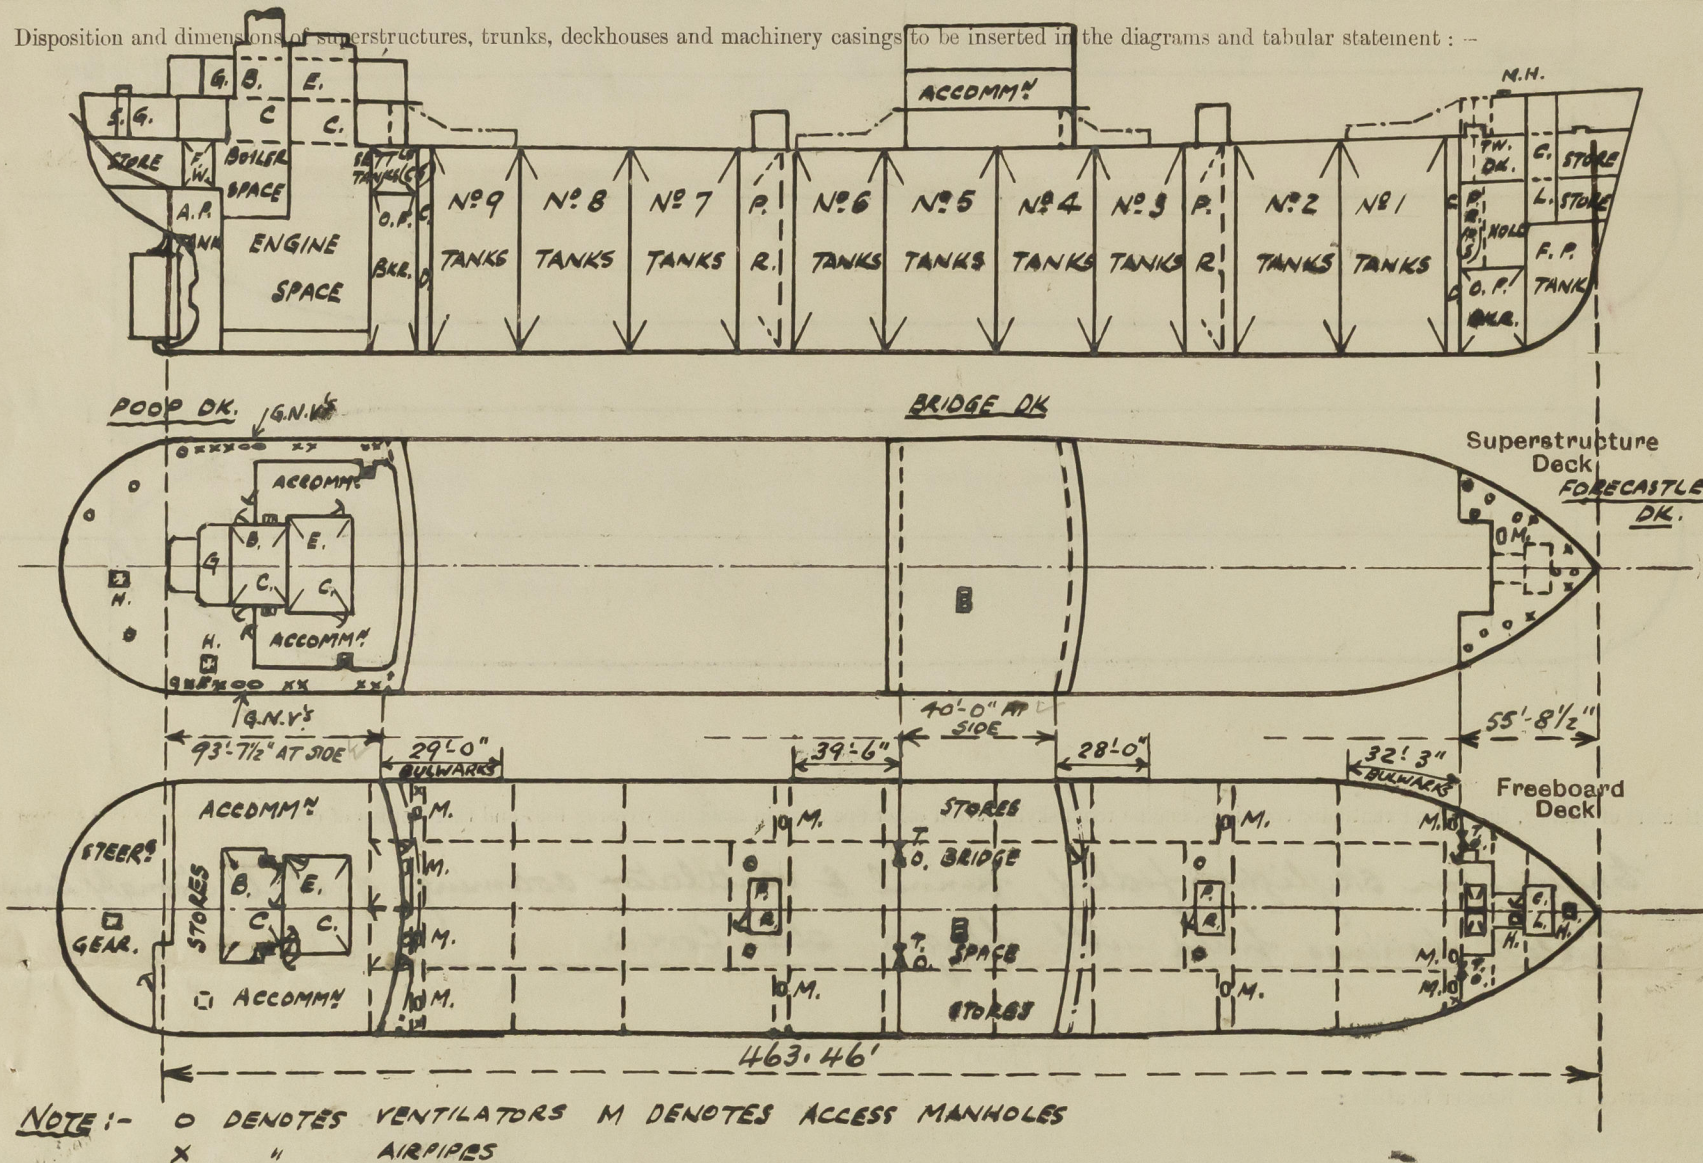 Disposition and dimensions of superstructures, trunks, deckhouses and machinery casings to be inserted in the diagrams and tabular statement : —
M.H.
G. B. E.
ACCOMMN
S. G.
C C.
STORE
F. W.
BOILER SPACE
SETTLG TANKS (C
TW. DK.
C. L.
STORE
STORE
A.P. TANK
O.F. BKR.
C. D.
No 9 TANKS
No 8 TANKS
No 7 TANKS
P. R.
No 6 TANKS
No 5 TANKS
No 4 TANKS
No 3 TANKS
P. R.
No 2 TANKS
No 1 TANKS
C D
HOLD
ENGINE SPACE
O. F. BKR.
F. P. TANK
POOP DK.
G.N.V's
BRIDGE DK
Superstructure
Deck
FORECASTLE
DK.
ACCOMMN
G B. E.
C. C.
M.
H.
H.
ACCOMMN
G.N.V's
93'-7½" AT SIDE
29'-0"
BULWARKS
39'-6"
40'-0" AT
SIDE
28'-0"
32'-3"
BULWARKS
55'-8½"
Freeboard
Deck
ACCOMMN
STEERG
GEAR.
STORES
B. E.
C. C.
M.
M.
M.
M.
M.
M.
STORES
T. O.
BRIDGE
SPACE
T. O.
STORES
P. R.
P. R.
M.
M.
M.
M.
M.
T. O.
T. O.
H.
C. L.
H.
ACCOMMN
463.46'
NOTE :- O DENOTES VENTILATORS M DENOTES ACCESS MANHOLES
X " AIRPIPES